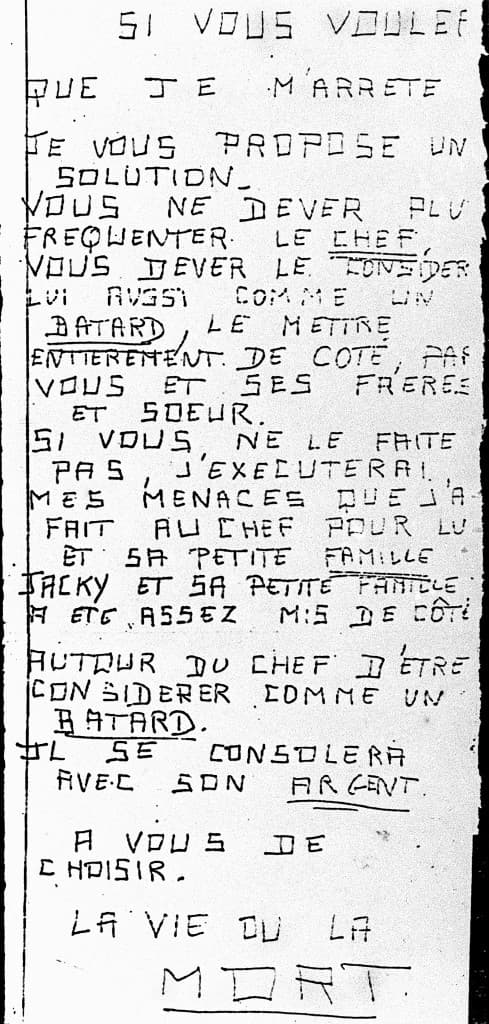 SI VOUS VOULEZ
QUE JE M'ARRETE
JE VOUS PROPOSE UN
SOLUTION.
VOUS NE DEVER PLU
FREQUENTER LE CHEF,
VOUS DEVER LE CONSIDER
LUI AUSSI COMME UN
BATARD, LE METTRE
ENTIEREMENT DE COTÉ, PAR
VOUS ET SES FRERES
ET SOEUR.
SI VOUS, NE LE FAITE
PAS, J'EXECUTERAI,
MES MENACES QUE J'A
FAIT AU CHEF POUR LU
ET SA PETITE FAMILLE
JACKY ET SA PETITE FAMILLE
A ETE ASSEZ MIS DE CÔTÉ
AUTOUR DU CHEF D'ÊTRE
CONSIDERER COMME UN
BATARD.
IL SE CONSOLERA
AVEC SON ARGENT.
A VOUS DE
CHOISIR.
LA VIE OU LA
MORT.